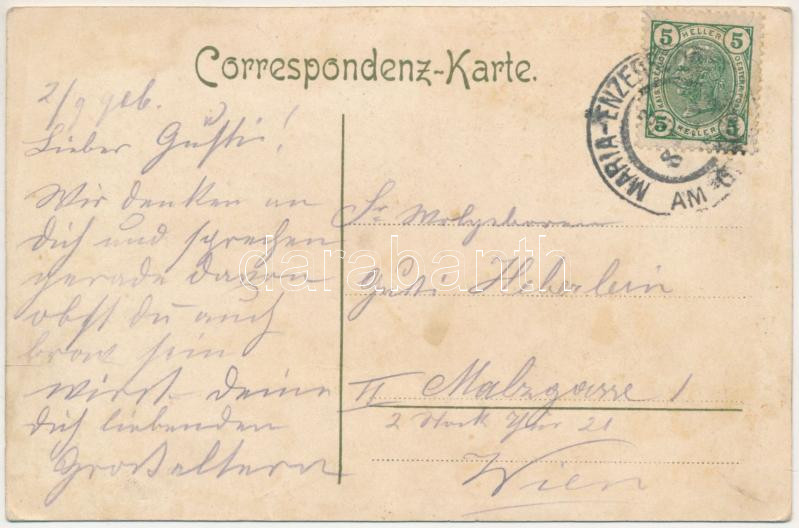 Correspondenz-Karte.
5 HELLER 5
5 HELLER 5
MARIA-ENZE
AM G
2/9 906.
Lieber Gusti!
Wir denken an
dich und sprechen
gerade davon
obst du auch
brav sein
wirst deine
dich liebenden
Großeltern
Sr Wolgeboren
Gusti Heberlein
II Malzgasse 1
2 Stock Thür 21
Wien
darabanth.com